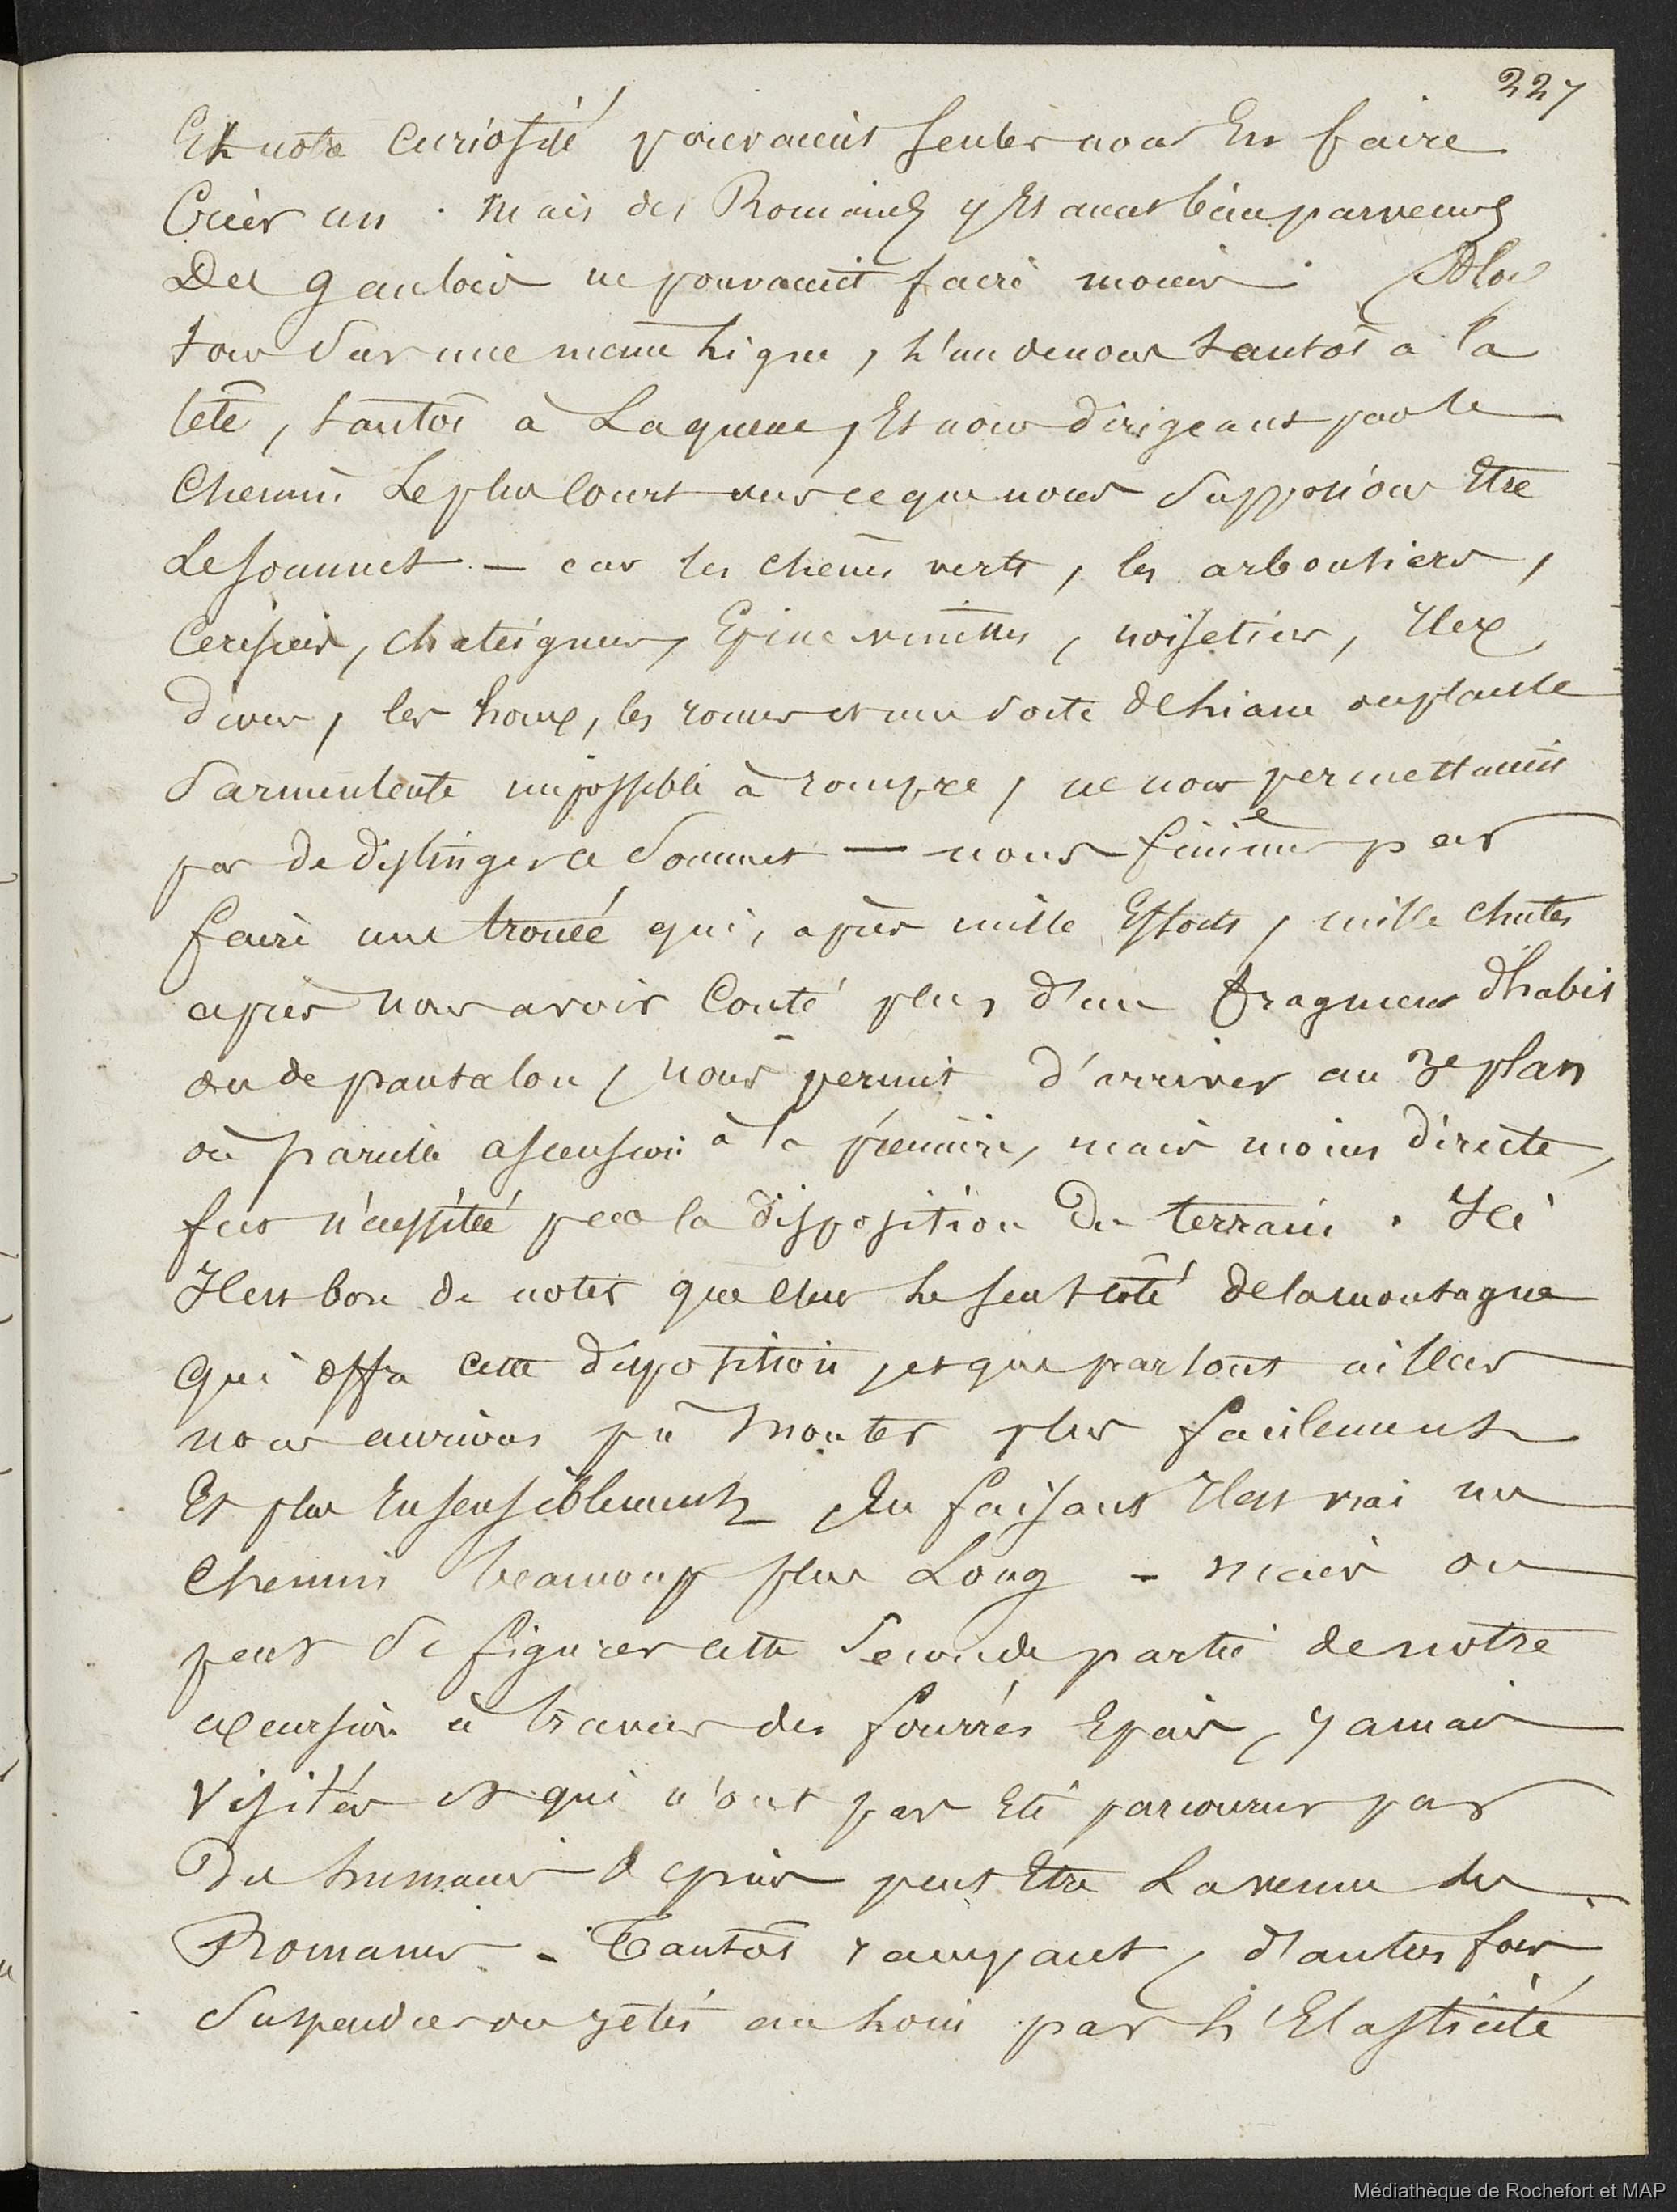 227
Et notre curiosité pouvaient seules nous En faire
Créer un . Mais des Romains y Etant bien parvenus
Des gaulois ne pouvaient faire moins . Alors
tous Sur une même Ligne, L'un de nous tantôt à la
tête, tantôt à La queue, Et nous dirigeant par le
Chemin Le plus Court vers ce que nous Supposions Etre
Le Sommet — car les chênes verts, les arbousiers,
Cerisiers, chateigners, Epine vinettes, noisetier, Ilex
divers, les houx, les ronces et une Sorte de Liane ou plante
Sarmentente impossible à rompre, ne nous permettaient
pas de distinger ce Sommet — nous finimes par
faire une trouée qui, après mille Efforts, mille chutes
après nous avoir Couté plus d'un fragment d'habit
ou de pantalon, nous permit d'arriver au 3e plan
où pareille ascension à la première, mais moins directe,
fut nécessitée par la disposition du terrain . Ici
Il est bon de noter que c'est Le seul côté de la montagne
qui offre cette disposition, et que partout ailleurs
nous aurions pû monter plus facilement
Et plus Insensiblement En faisant Il est vrai un
Chemin beaucoup plus Long - mais on
peut Se figurer cette Seconde partie de notre
excursion à travers des fourrés Epais, jamais
Visités et qui n'ont pas Eté parcourus par
Des humains depuis peut Etre La venue des
Romains - Tantôt rampant, d'autres fois
Suspendus ou jetés au Loin par L'Elasticité
Médiathèque de Rochefort et MAP